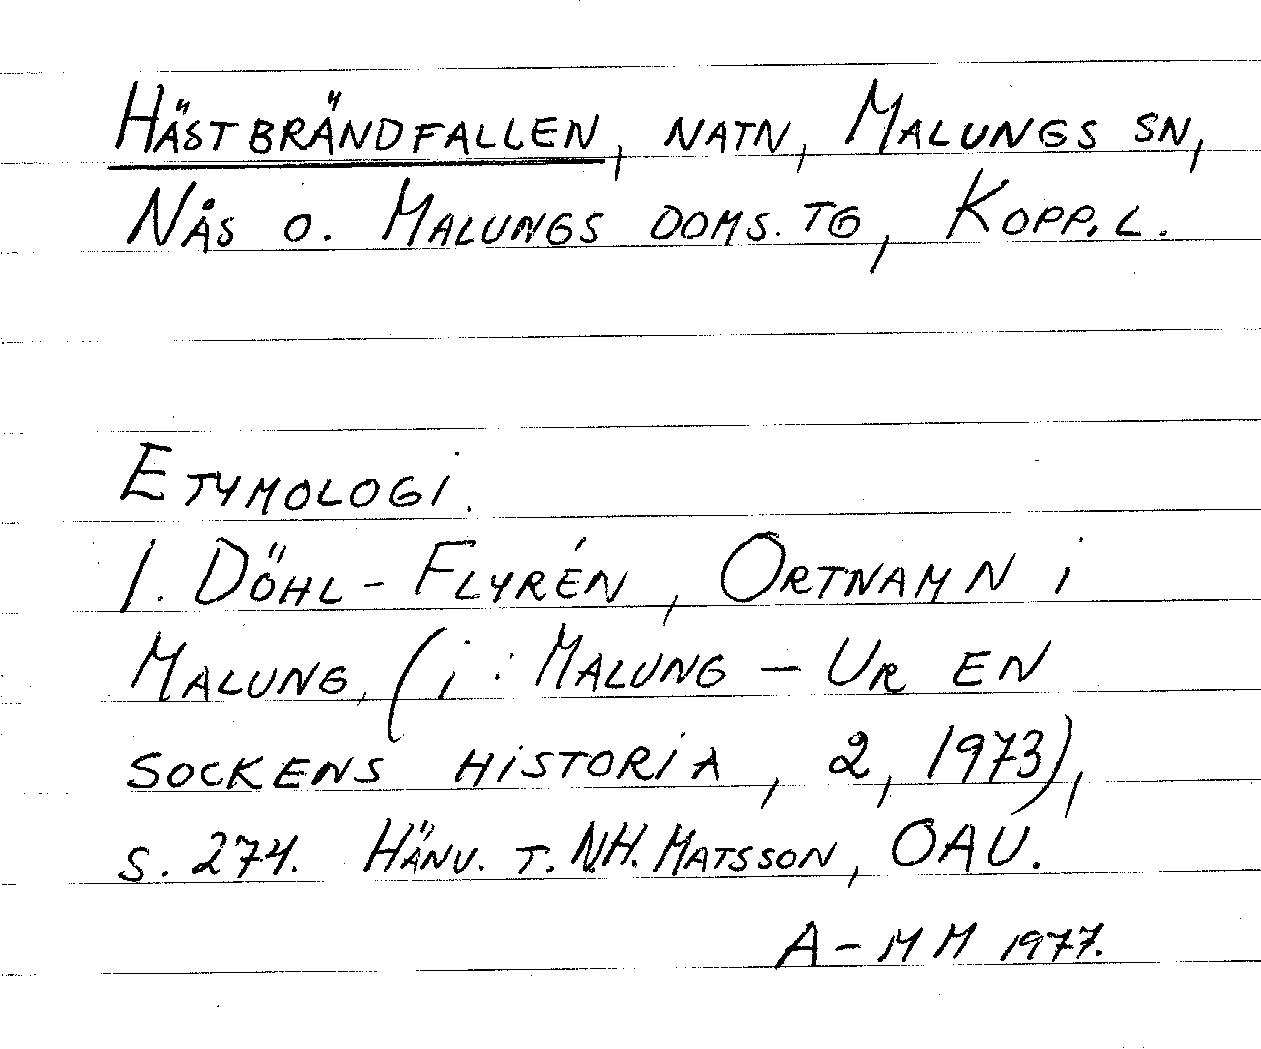 HÄSTBRÄNDFALLEN, NATN, MALUNGS SN,
NÅS O. MALUNGS DOMS. TG, KOPP. L.
ETYMOLOGI.
I. DÖHL-FLYRÉN, ORTNAMN I
MALUNG, (I: MALUNG – UR EN
SOCKENS HISTORIA, 2, 1973),
S. 274. HÄNV. T. N.H. MATSSON, OAU.
A-MM 1977.